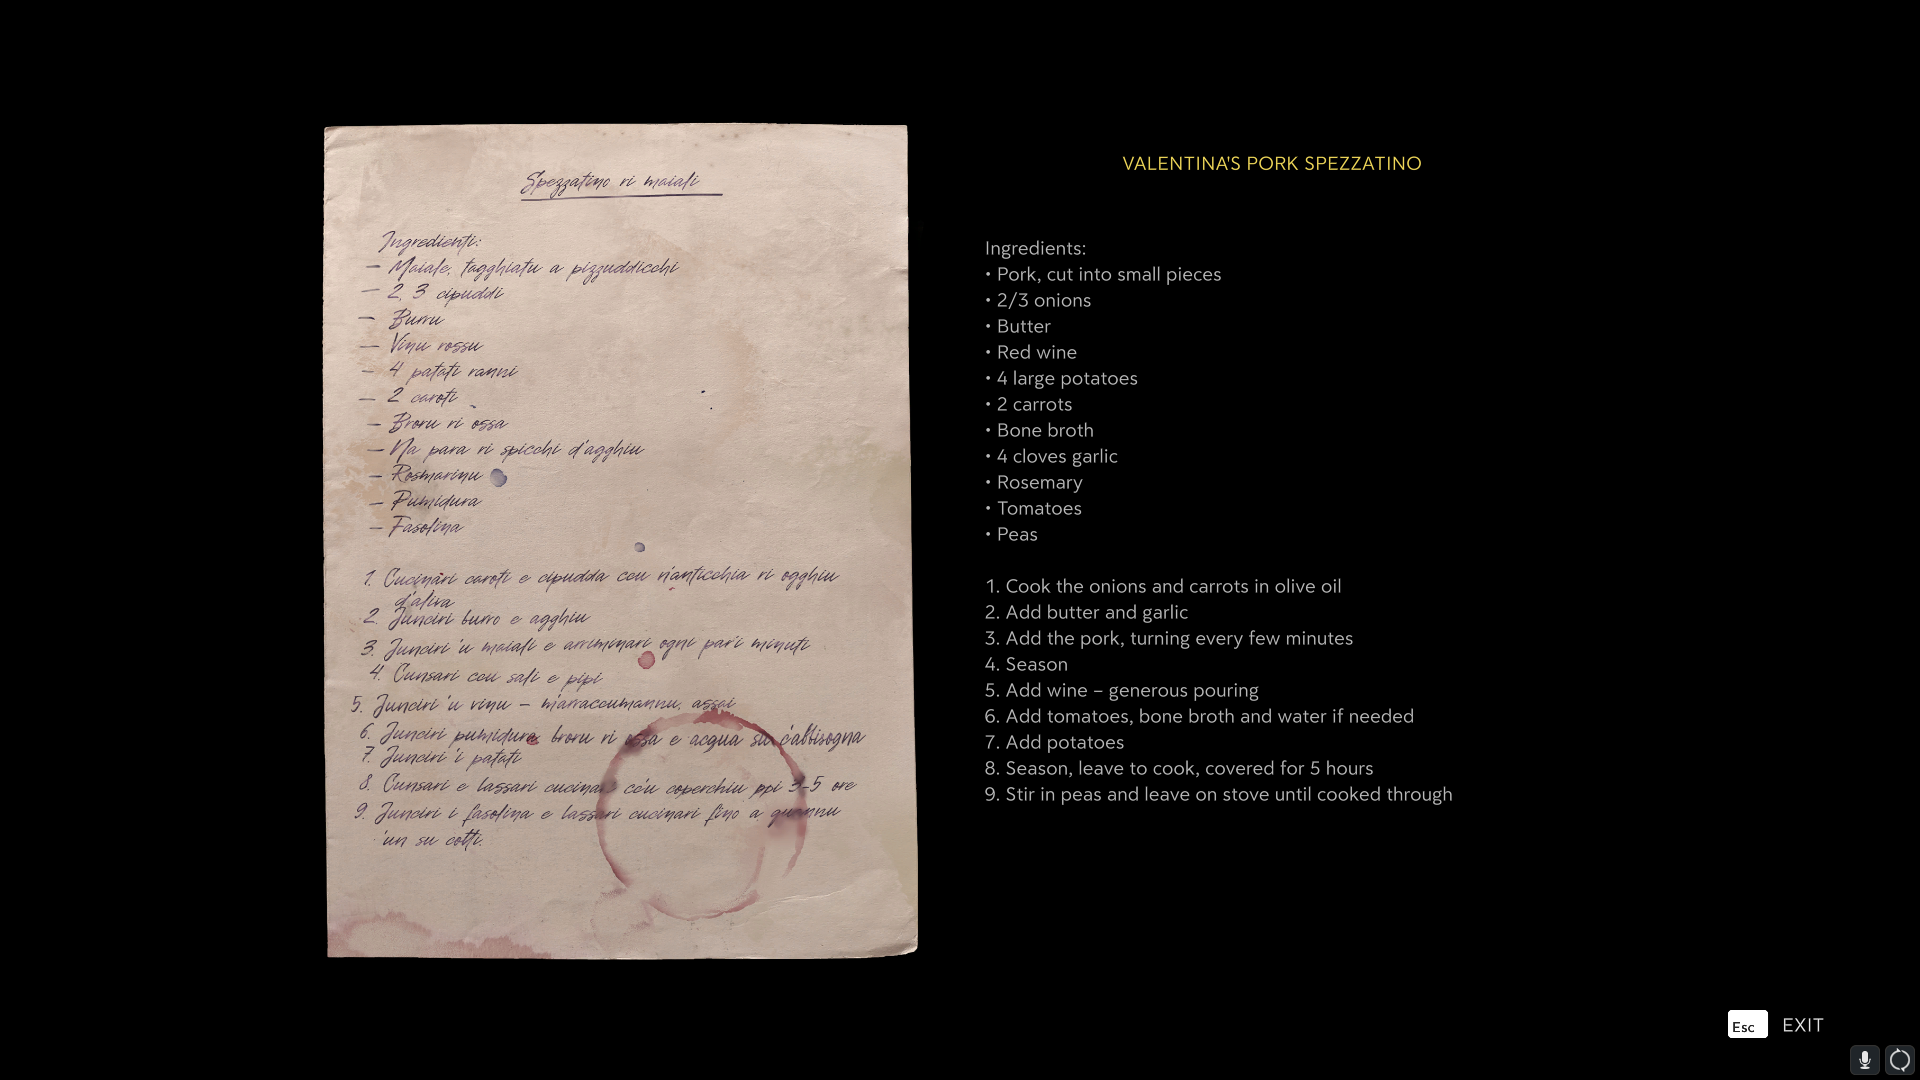 Spezzatino ri maiali
Ingredienti:
– Maiale, tagghiatu a pizzuddicchi
– 2, 3 cipuddi
– Burru
– Vinu rossu
– 4 patati ranni
– 2 caroti
– Broru ri ossa
– Na para ri spicchi d'agghiu
– Rosmarinu
– Pumidura
– Fasolina
1. Cucinari caroti e cipudda ccu n'anticchia ri ogghiu
d'aliva
2. Junciri burro e agghiu
3. Junciri 'u maiali e arriminari ogni par'i minuti
4. Cunsari ccu sali e pipi
5. Junciri 'u vinu – m'arraccumannu, assai
6. Junciri pumidura, broru ri ossa e acqua su c'abbisogna
7. Junciri 'i patati
8. Cunsari e lassari cucinari c'ou coperchiu ppi 3-5 ore
9. Junciri i fasolina e lassari cucinari fino a quannu
'un su cotti.
VALENTINA'S PORK SPEZZATINO
Ingredients:
• Pork, cut into small pieces
• 2/3 onions
• Butter
• Red wine
• 4 large potatoes
• 2 carrots
• Bone broth
• 4 cloves garlic
• Rosemary
• Tomatoes
• Peas
1. Cook the onions and carrots in olive oil
2. Add butter and garlic
3. Add the pork, turning every few minutes
4. Season
5. Add wine – generous pouring
6. Add tomatoes, bone broth and water if needed
7. Add potatoes
8. Season, leave to cook, covered for 5 hours
9. Stir in peas and leave on stove until cooked through
Esc EXIT